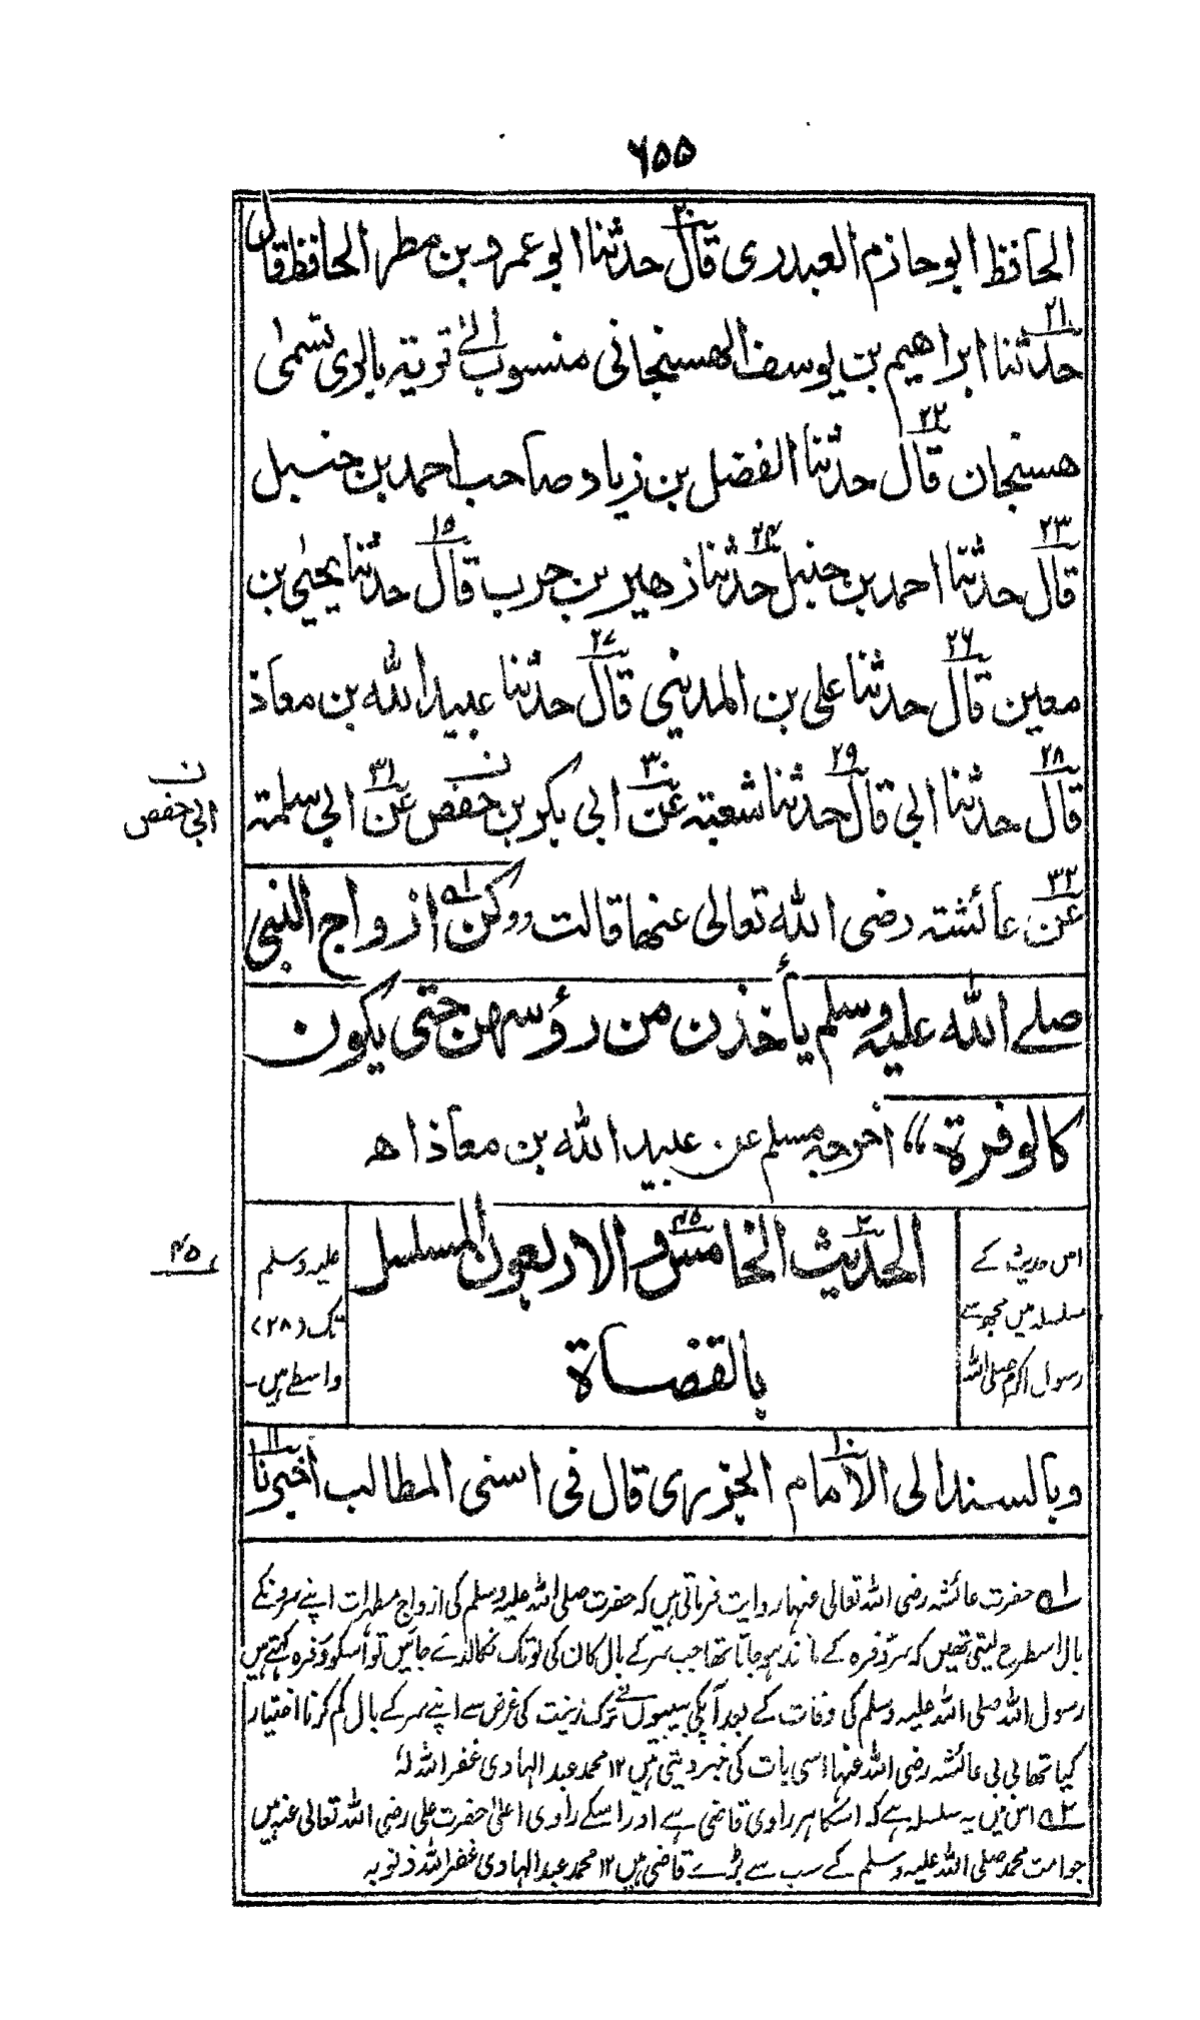 ۶۵۵
الحافظ ابو حازم العبدری قال۲۰ حدثنا ابو عمرو بن مطر الحافظ قال
حدثنا۲۱ ابراهیم بن یوسف الهسنجانی منسوب الیٰ قریۃ بالری تسمیٰ
هسنجان قال۲۲ حدثنا الفضل بن زیاد صاحب احمد بن حنبل
قال۲۳ حدثنا احمد بن حنبل حدثنا۲۴ زهیر بن حرب قال۲۵ حدثنا یحییٰ بن
معین قال۲۶ حدثنا علی بن المدینی قال۲۷ حدثنا عبید الله بن معاذ
قال۲۸ حدثنا ابی قال۲۹ حدثنا شعبۃ عن۳۰ ابی بکر بن حفص عن۳۱ ابی سلمۃ
ن
ابی حفص
عن۳۲ عائشۃ رضی الله تعالی عنها قالت ,,کن۱ ازواج النبی
صلے الله علیہ وسلم یأخذن من رؤسهن حتی یکون
کالوفرۃ،، اخرجہ مسلم عن عبید الله بن معاذ اھ
الحدیث۲ الخامس والاربعون۴۵ المسلسل
بالقضاۃ
۴۵
اس حدیث کے
سلسلہ میں مجھ سے
رسول اکرم صلی اللہ
علیہ وسلم
تک (۲۸)
واسطے ہیں۔
وبالسند الی الامام۱۰ الجزری قال فی اسنی المطالب اخبرنا۱۱
۱؎ حضرت عائشہ رضی اللہ تعالی عنہا روایت فرماتی ہیں کہ حضرت صلی اللہ علیہ وسلم کی ازواج مطہرات اپنے سرونکے
بال اسطرح لیتی تھیں کہ سر وفرہ کے مانند ہو جاتا تھا جب سر کے بال کان کی لو تک نکالدئے جائیں تو اسکو وفرہ کہتے ہیں
رسول اللہ صلی اللہ علیہ وسلم کی وفات کے بعد آپکی بیبیوں نے ترک زینت کی غرض سے اپنے سر کے بال کم کرنا اختیار
کیا تھا بی بی عائشہ رضی اللہ عنہا اسی بات کی خبر دیتی ہیں ۱۲ محمد عبد الہادی غفر اللہ لہٗ
۲؎ اس میں یہ سلسلہ ہے کہ اسکا ہر راوی قاضی ہے اور اسکے راوی اعلیٰ حضرت علی رضی اللہ تعالی عنہ ہیں
جو امت محمد صلی اللہ علیہ وسلم کے سب سے بڑے قاضی ہیں ۱۲ محمد عبد الہادی غفر اللہ ذنوبہ